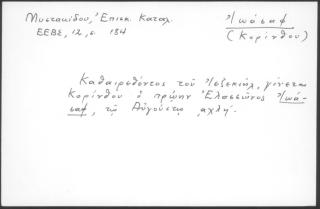 Μυστακίδου, Ἐπισκ. Καταλ.
ΕΕΒΣ, 12, σ. 184
Ἰωάσαφ
(Κορίνθου)
Καθαιρεθέντος τοῦ Ἰεζεκιὴλ, γίνεται
Κορίνθου ὁ πρώην Ἐλασσῶνος Ἰωά-
σαφ, τῷ Αὐγούστῳ ͵αχλή.